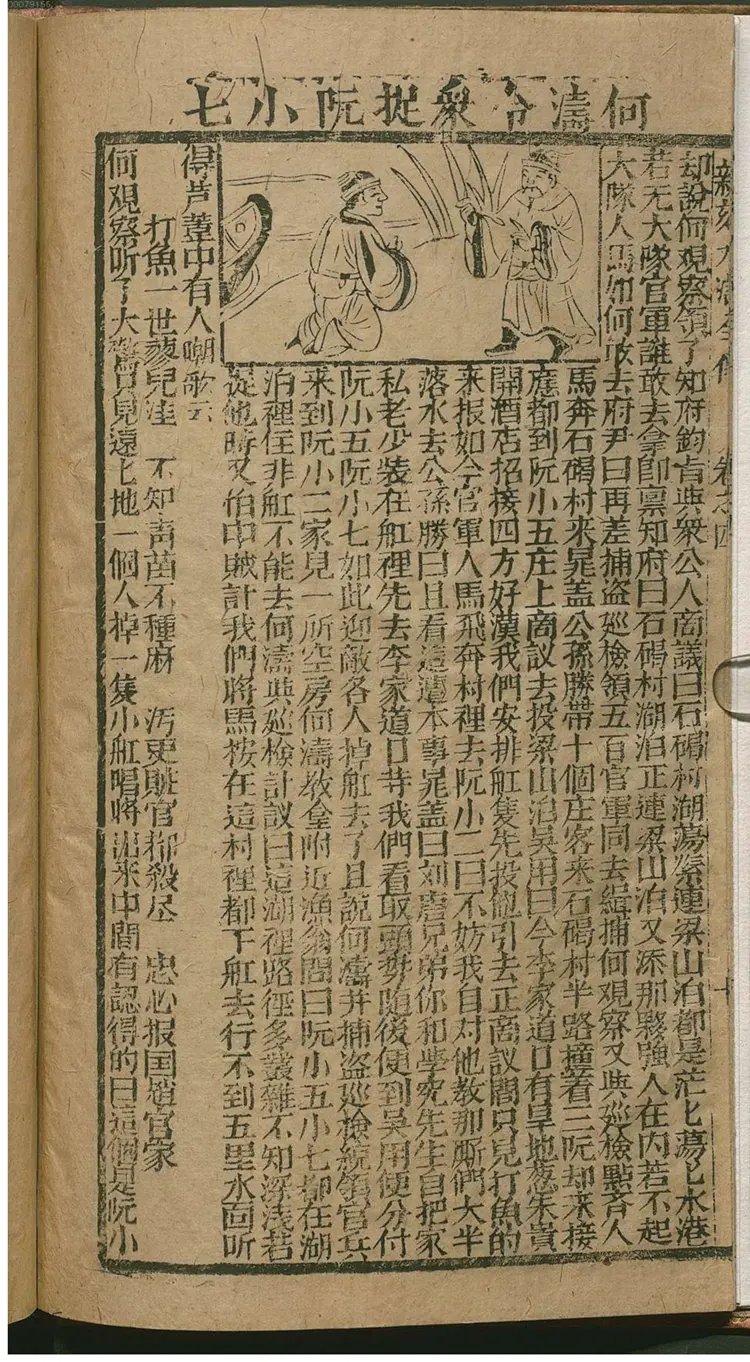 何濤令衆捉阮小七
卷之四
十
却說何觀察領了知府鈞旨與衆公人商議曰石碣村湖蕩緊連梁山泊都是茫匕蕩匕水港
若无大隊官軍誰敢去拿即禀知府曰石碣村湖泊正連梁山泊又添那夥強人在内若不起
大隊人馬如何敢去府尹曰再差捕盗巡檢領五百官軍同去緝捕何觀察又與巡檢點齐人
馬奔石碣村来晁盖公孫勝帶十個庄客来石碣村半路撞着三阮却来接
應都到阮小五庄上商議去投梁山泊吳用曰今李家道口有旱地葱朱貴
開酒店招接四方好漢我們安排舡隻先投他引去正商議間只見打魚的
来报如今官軍人馬飛奔村裡去阮小二曰不妨我自对他教那厮們大半
落水去公孫勝曰且看這遭本事晁盖曰刘唐兄弟你和學究先生自把家
私老少裝在舡裡先去李家道口等我們看取頭势随後便到吳用便分付
阮小五阮小七如此迎敵各人掉舡去了且說何濤并捕盗巡檢統領官兵
来到阮小二家見一所空房何濤教拿附近漁翁問曰阮小五小七都在湖
泊裡住非舡不能去何濤與巡檢計議曰這湖裡路徑多叢雜不知深浅若
從他時又怕中賊計我們將馬按在這村裡都下舡去行不到五里水面听
得芦葦中有人嘲歌云
打魚一世蓼兒洼 不知青苗不種麻 污吏賍官都殺尽 忠心报国趙官家
何觀察听了大驚只見遠匕地一個人掉一隻小舡唱將出来中間有認得的曰這個是阮小